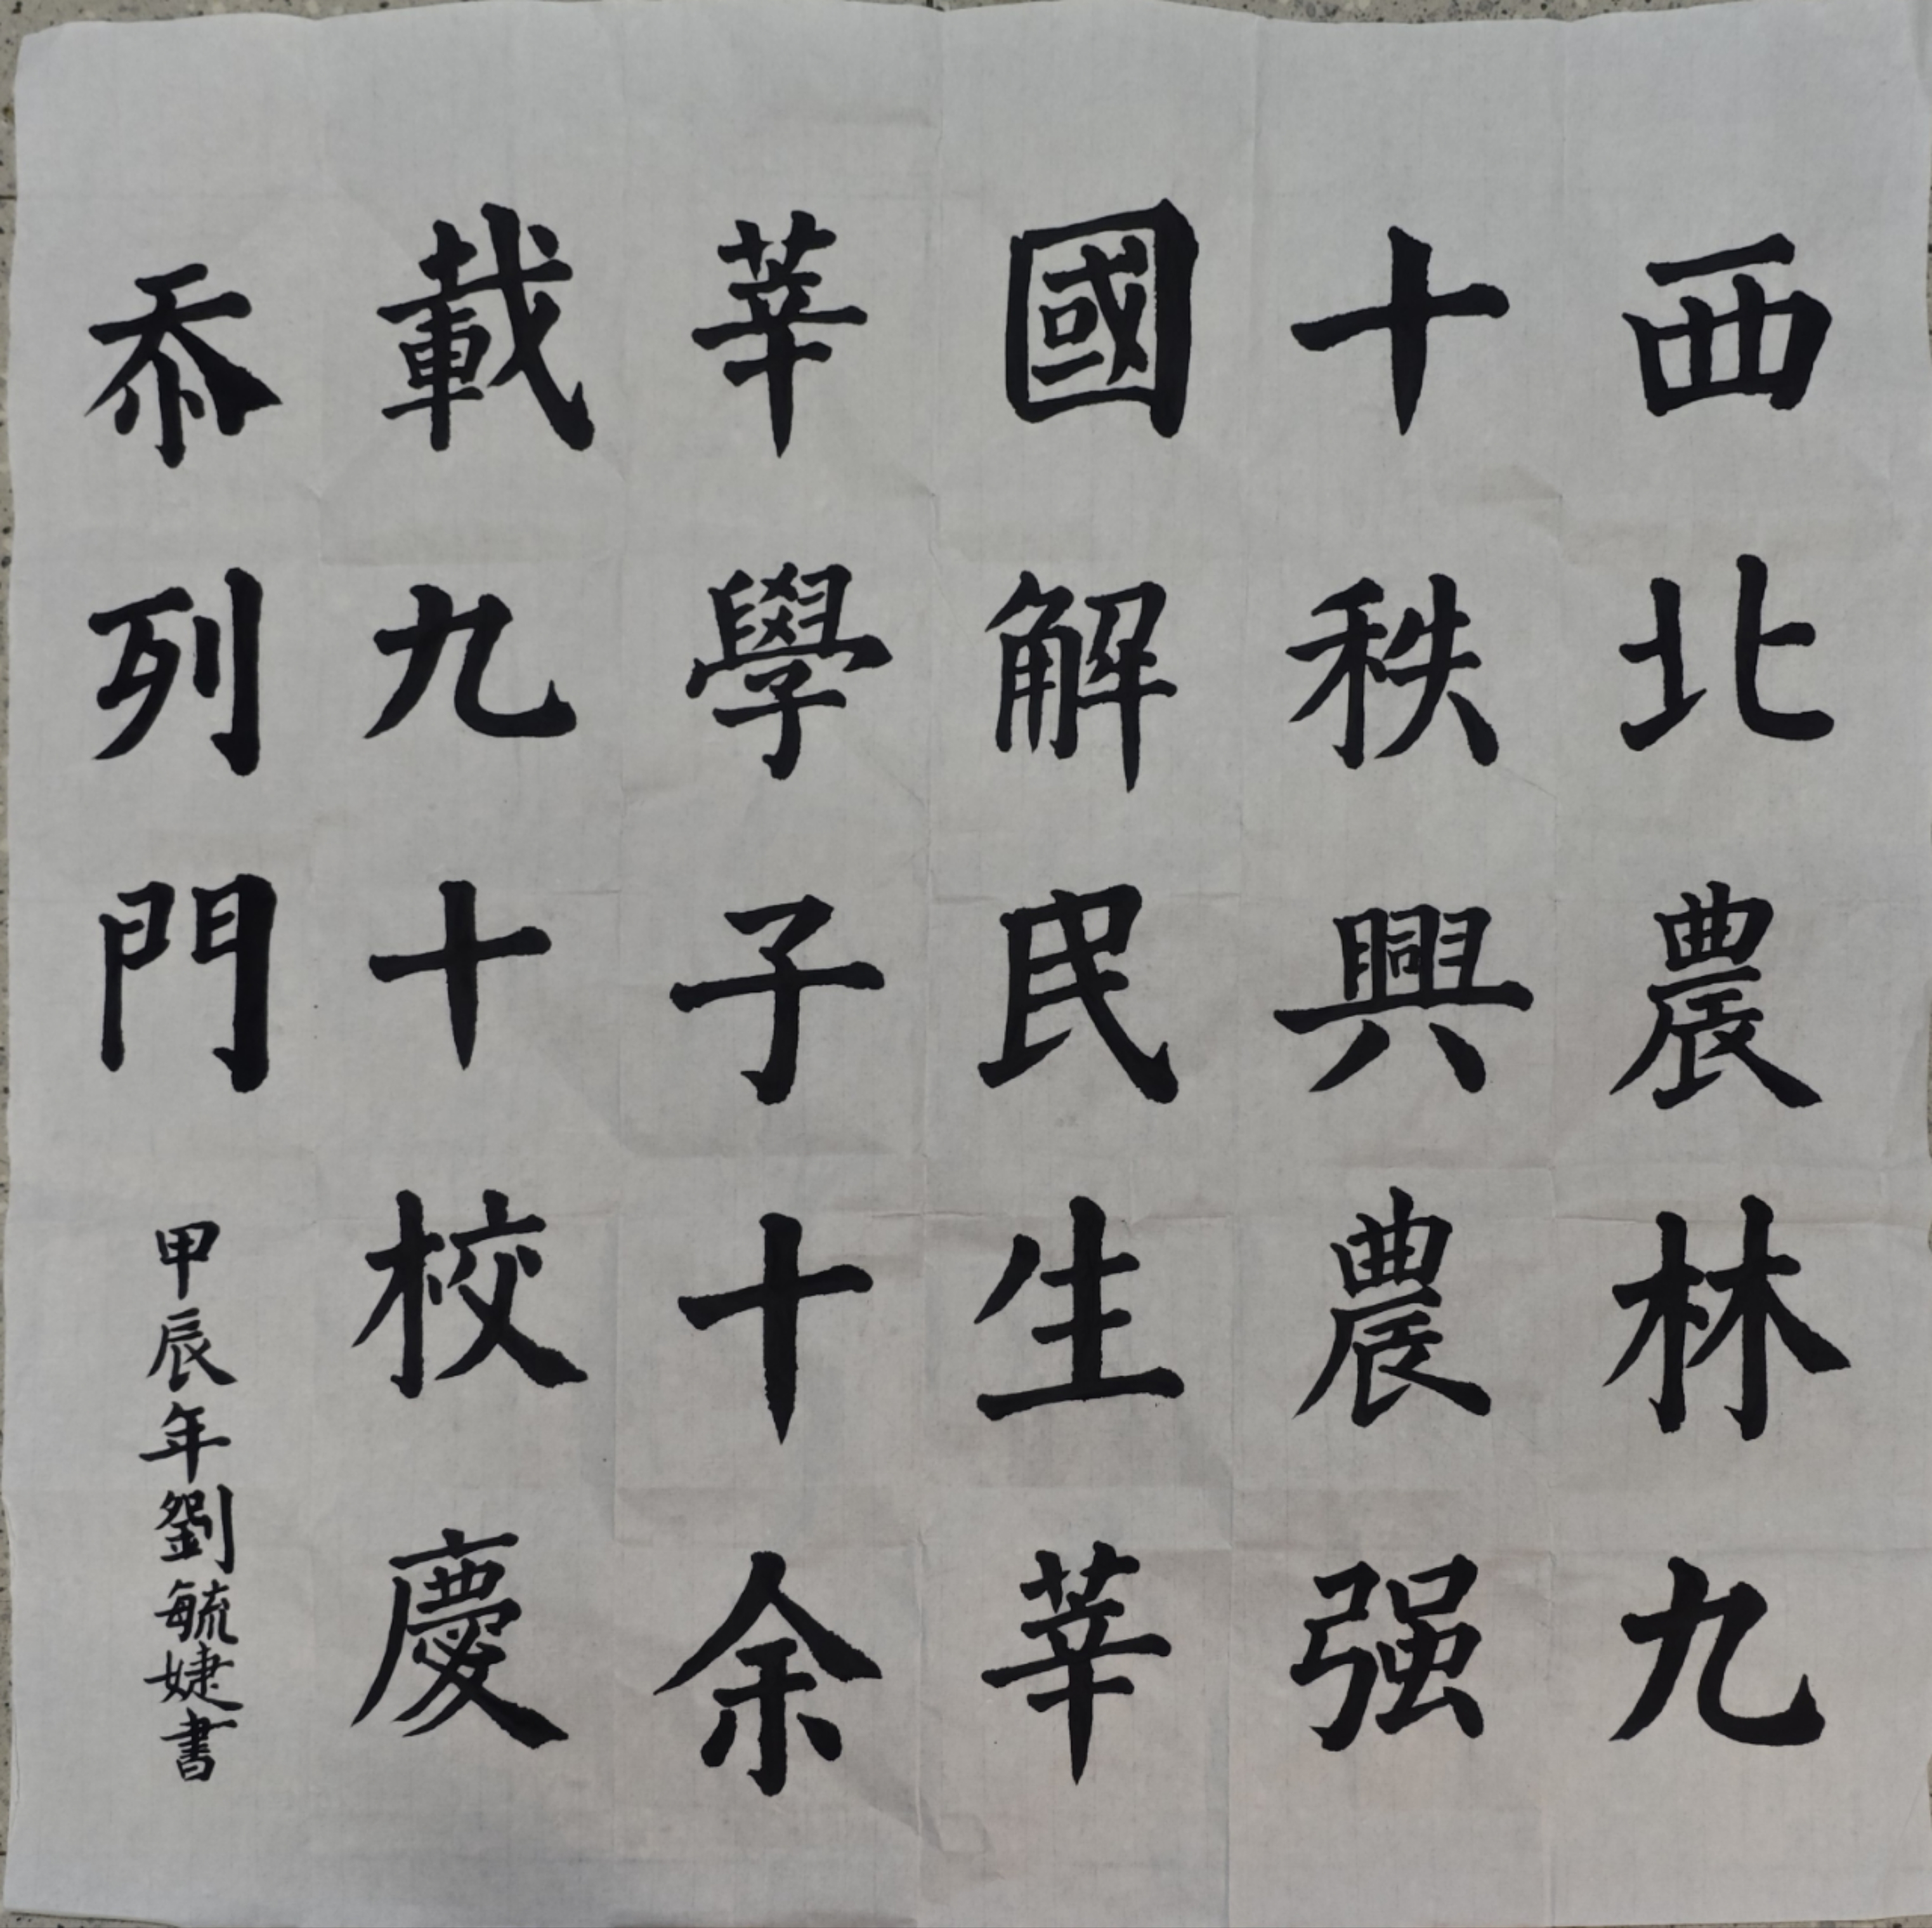 西北農林九
十秩興農强
國解民生莘
莘學子十余
載九十校慶
忝列門
甲辰年劉毓婕書